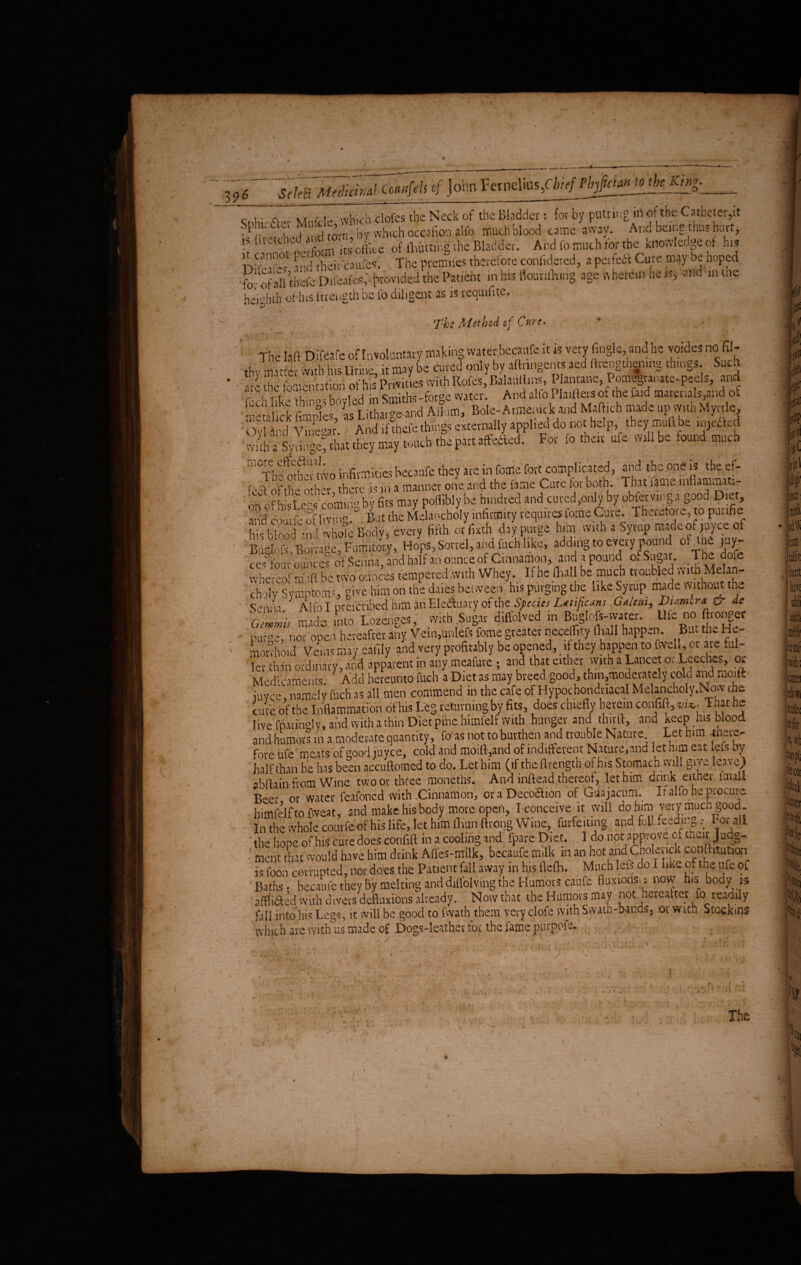 396 Select Medicinal Counsels of John Fernelius, Chief Physician to the King.
Sphincter Muscle, which closes the Neck of the Bladder: for by putting in of the Catheter, it
is stretched and torn, by which occasion also much blood came away. And being thus hurt,
it cannot perform its office of shutting the Bladder. And so much for the knowledge of his
Diseases, and their causes. The premises therefore considered, a perfect Cure may be hoped
for, of all these Diseases, provided the Patient in his flourishing age wherein he is, and in the
heighth of his strength be so diligent as is requisite.
The Method of Cure.
The last Disease of Involuntary making water because it is very single, and he voides no fil-
thy matter with his Urine, it may be cured only by astringents aed strengthening things. Such
are the fomentation of his Privities with Roses, Balaustins, Plantane, Pomegranate-peels, and
such like things boyled in Smiths-forge water. And also Plaisters of the said materials, and of
metalick simples, as Litharge and Allum, Bole-Armenick and Mastich made up with Myrtle,
Oyl and Vinegar. And if these things externally applied do not help, they must be injected
with a Syringe, that they may touch the part affected. For so their use will be found much
more effectual.
The other two infirmities because they are in some sort complicated, and the one is the ef-
fect of the other, there is in a manner one and the same Cure for both. That same inflammati-
on of his Legs coming by fits may possibly be hindred and cured, only by observing a good Diet,
and course of living. But the Melancholy infirmity requires some Cure. Therefore, to purifie
his blood and whole Body, every fifth or sixth day purge him with a Syrup made of juyce of
Buglofs, Borrage, Fumitory, Hops, Sorrel, and such like, adding to every pound of the juy-
ces four ounces of Senna, and half an ounce of Cinnamon, and a pound of Sugar. The dose
whereof must be two ounces tempered with Whey. If he shall be much troubled with Melan-
choly Symptoms, give him on the daies between his purging the like Syrup made without the
Senna. Also I prescribed him an Electuary of the Species Lætificans Galeni, Diambra & de
Gemmis made into Lozenges, with Sugar dissolved in Buglofs-water. Use no stronger
purge, nor open hereafter any Vein, unless some greater necessity shall happen. But the He-
morrhoid Veins may easily and very profitably be opened, if they happen to swell, or are ful-
ler than ordinary, and apparent in any measure; and that either with a Lancet or Leeches, or
Medicaments. Add hereunto such a Diet as may breed good, thin, moderately cold and moist
juyce, namely such as all men commend in the case of Hypochondriacal Melancholy. Now the
cure of the Inflammation of his Leg returning by fits, does chiefly herein consist, viz. That he
live sparingly, and with a thin Diet pine himself with hunger and thirst, and keep his blood
and humors in a moderate quantity, so as not to burthen and trouble Nature. Let him there-
fore use meats of good juyce, cold and moist, and of indifferent Nature, and let him eat less by
half than he has been accustomed to do. Let him (if the strength of his Stomach will give leave)
abstain from Wine two or three moneths. And instead thereof, let him drink either small
Beer, or water seasoned with Cinnamon, or a Decoction of Guajacum. If also he procure
himself to sweat, and make his body more open, I conceive it will do him very much good.
In the whole course of his life, let him shun strong Wine, surfeiting and full feeding: For all
the hope of his cure does consist in a cooling and spare Diet. I do not approve of their Judg-
ment that would have him drink Asses-milk, because milk in an hot and Cholerick constitution
is soon corrupted, nor does the Patient fall away in his flesh. Much less do I like of the use of
Baths; because they by melting and dissolving the Humors cause fluxions; now his body is
afflicted with divers defluxions already. Now that the Humors may not hereafter so readily
fall into his Legs, it will be good to swath them very close with Swath-bands, or with Stockins
which are with us made of Dogs-leather for the same purpose.
The